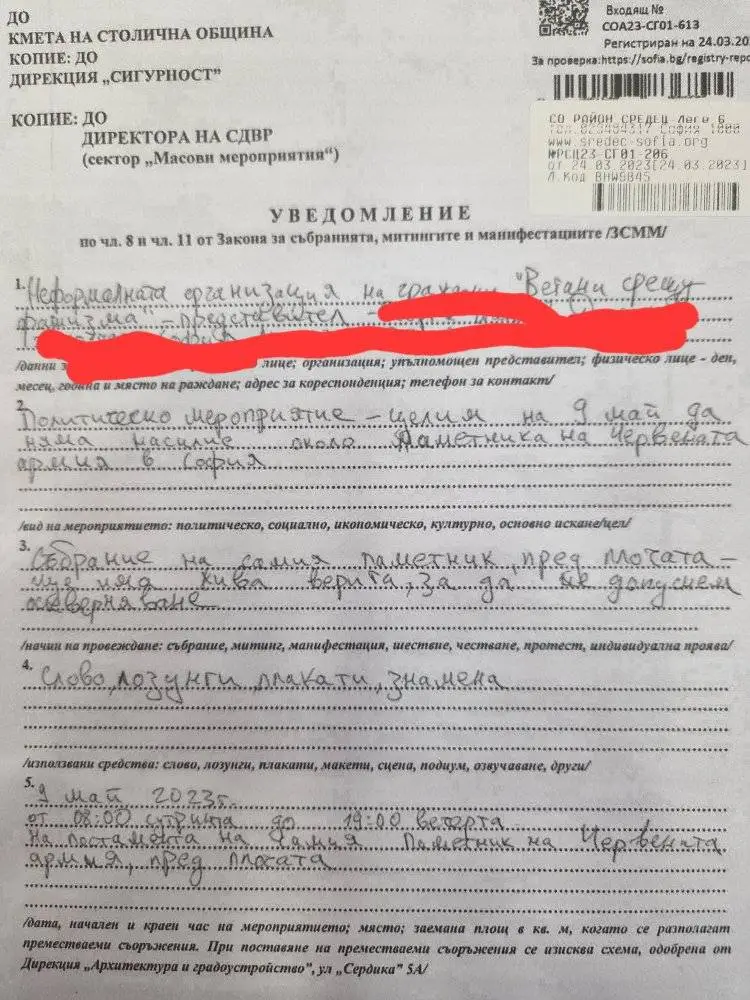 ДО
КМЕТА НА СТОЛИЧНА ОБЩИНА
КОПИЕ: ДО
ДИРЕКЦИЯ „СИГУРНОСТ”
КОПИЕ: ДО
ДИРЕКТОРА НА СДВР
(сектор „Масови мероприятия“)
Входящ №
СОА23-СГ01-613
Регистриран на 24.03.202
За проверка:https://sofia.bg/registry-repo
СО РАЙОН СРЕДЕЦ Леге 6
София 1000
www.sredec-sofia.org
№РСЦ23-СГ01-206
от 24.03.2023[24.03.2023]
Л.Код BHW9B45
УВЕДОМЛЕНИЕ
по чл. 8 и чл. 11 от Закона за събранията, митингите и манифестациите /ЗСММ/
1. Неформалната организация на граждани "Ветани срещу
фашизма", - представител -
/данни з лице; организация; упълномощен представител; физическо лице - ден,
месец, година и място на раждане; адрес за кореспонденция; телефон за контакт/
2. Политическо мероприятие - целим на 9 май да
няма насилие около Паметника на Червената
армия в София
/вид на мероприятието: политическо, социално, икономическо, културно, основно искане/цел/
3. Събрание на самия паметник, пред плочата -
ще има жива верига, за да не допуснем
оскверняване
/начин на провеждане: събрание, митинг, манифестация, шествие, честване, протест, индивидуална проява/
4. Слово, лозунги, плакати, знамена
/използвани средства: слово, лозунги, плакати, макети, сцена, подиум, озвучаване, други/
5. 9 май 2023г.
от 08:00 сутринта до 19:00 вечерта
на постамента на самия Паметник на Червената
армия, пред плочата
/дата, начален и краен час на мероприятието; място; заемана площ в кв. м, когато се разполагат
преместваеми съоръжения. При поставяне на преместваеми съоръжения се изисква схема, одобрена от
Дирекция „Архитектура и градоустройство”, ул „Сердика” 5А/